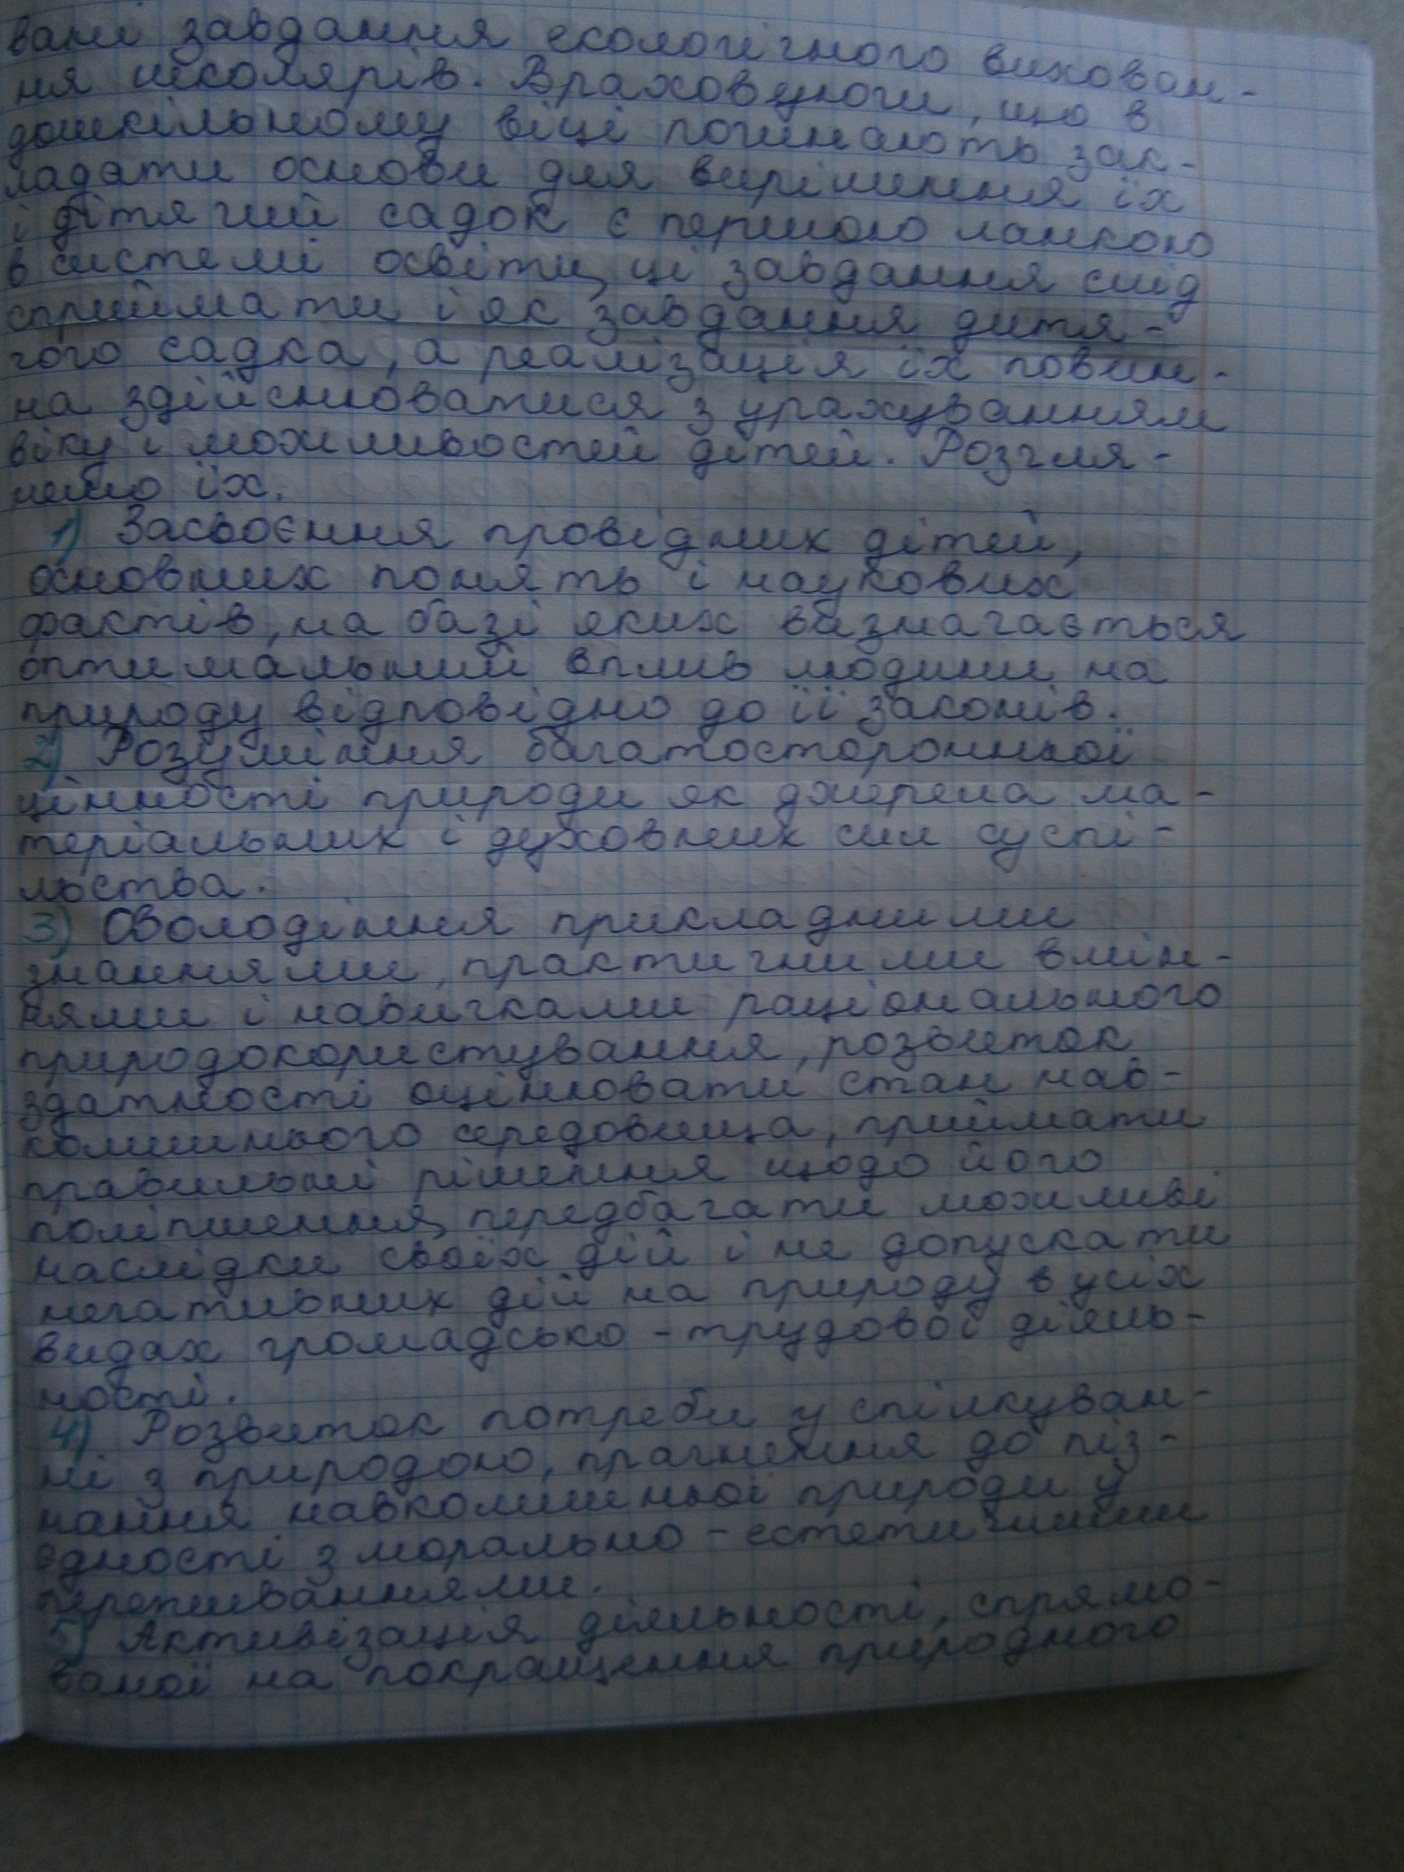 вані завдання екологічного вихован-
ня школярів. Враховуючи, що в
дошкільному віці починають зак-
ладати основи для вирішення їх
і дітячий садок є першою ланкою
в системі освіти, ці завдання слід
сприймати і як завдання дитя-
чого садка, а реалізація їх повин-
на здійснюватися з урахуванням
віку і можливостей дітей. Розгля-
немо їх.
1) Засвоєння провідних дітей,
основних понять і наукових
фактів, на базі яких визначається
оптимальний вплив людини на
природу відповідно до її законів.
2) Розуміння багатосторонньої
цінності природи як джерела ма-
теріальних і духовних сил суспі-
льства.
3) Оволодіння прикладними
знаннями, практичними вмін-
нями і навичками раціонального
природокористування, розвиток
здатності оцінювати стан нав-
колишнього середовища, приймати
правильні рішення щодо його
поліпшення, передбачати можливі
наслідки своїх дій і не допускати
негативних дій на природу в усіх
видах громадсько-трудової діяль-
ності.
4) Розвиток потреби у спілкуван-
ні з природою, прагнення до піз-
нання навколишньої природи у
єдності з морально-естетичними
переживаннями.
5) Активізація діяльності, спрямо-
ваної на покращення природного